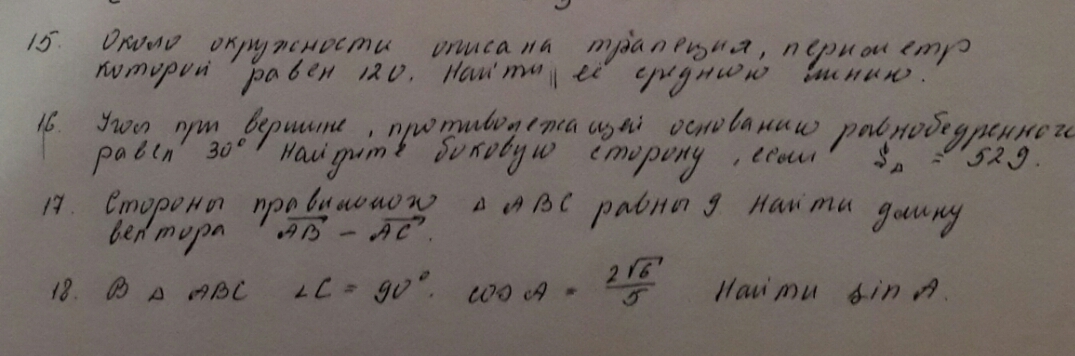 15. Около окружности описана трапеция, периметр
которой равен 120. Найти её среднюю линию.
16. Угол при вершине, противолежащей основанию равнобедренного
равен 30° Найдите боковую сторону, если S△ = 529.
17. Стороны правильного △ ABC равны 9 Найти длину
вектора AB - AC.
18. В △ ABC ∠C = 90°. cos A = 2√6/5 Найти sin A.